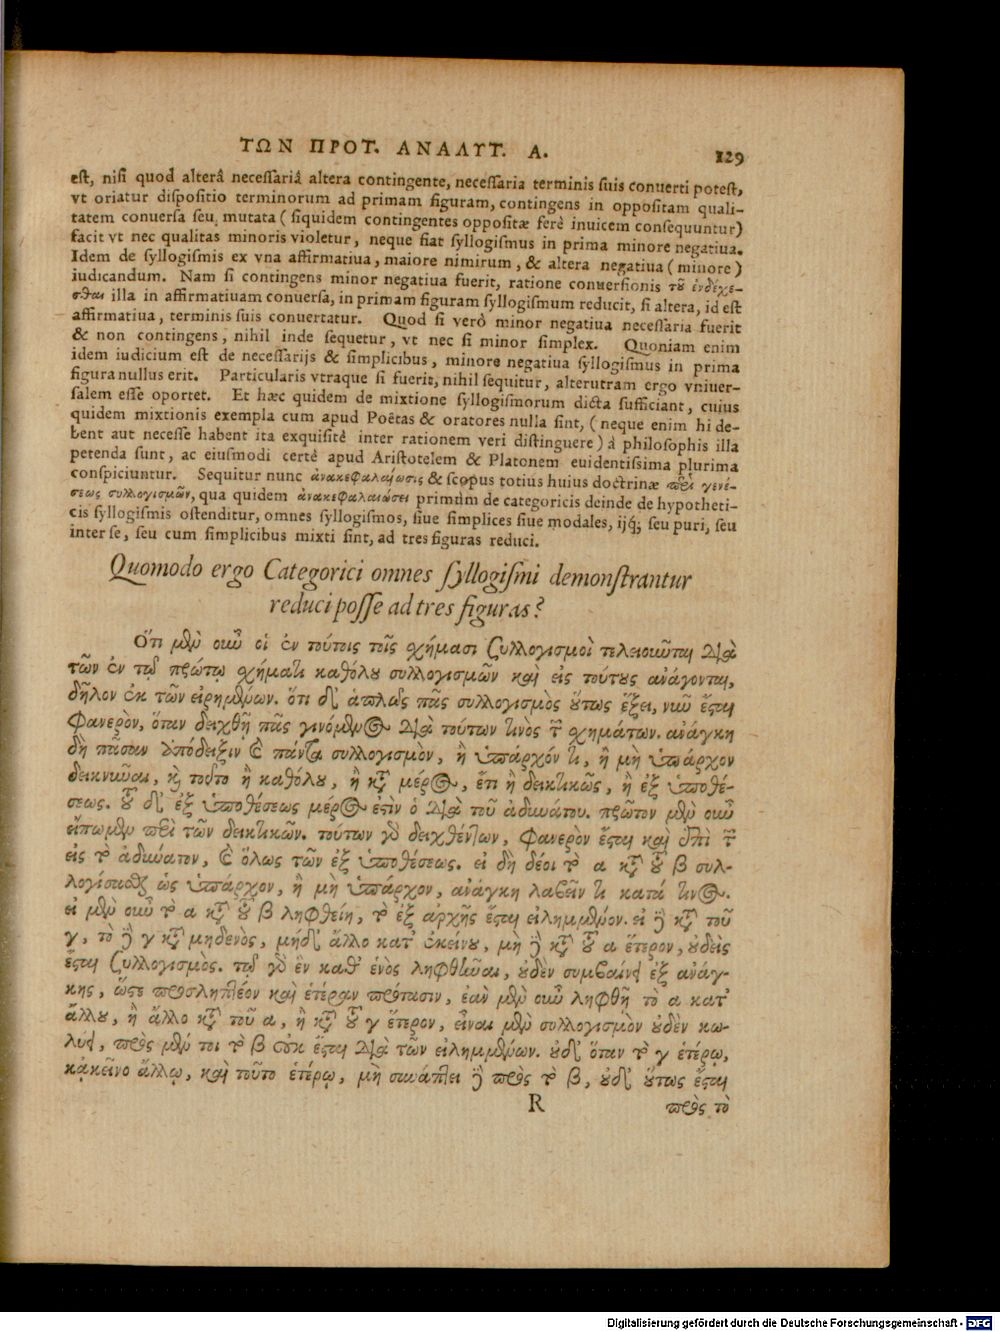 ΤΩΝ ΠΡΟΤ. ΑΝΑΛΥΤ. Α. 129
est, nisi quod alterâ necessariâ altera contingente, necessaria terminis suis conuerti potest,
vt oriatur dispositio terminorum ad primam figuram, contingens in oppositam quali-
tatem conuersa seu mutata (siquidem contingentes oppositæ ferè inuicem consequuntur)
facit vt nec qualitas minoris violetur, neque fiat syllogismus in prima minore negatiua.
Idem de syllogismis ex vna affirmatiua, maiore nimirum, & altera negatiua (minore)
iudicandum. Nam si contingens minor negatiua fuerit, ratione conuersionis τοῦ ἐνδέχε-
σθαι illa in affirmatiuam conuersa, in primam figuram syllogismum reducit, si altera, id est
affirmatiua, terminis suis conuertatur. Quod si verò minor negatiua necessaria fuerit
& non contingens, nihil inde sequetur, vt nec si minor simplex. Quoniam enim
idem iudicium est de necessarijs & simplicibus, minore negatiua syllogismus in prima
figura nullus erit. Particularis vtraque si fuerit, nihil sequitur, alterutram ergo vniuer-
salem esse oportet. Et hæc quidem de mixtione syllogismorum dicta sufficiant, cuius
quidem mixtionis exempla cum apud Poëtas & oratores nulla sint, (neque enim hi de-
bent aut necesse habent ita exquisitè inter rationem veri distinguere) à philosophis illa
petenda sunt, ac eiusmodi certè apud Aristotelem & Platonem euidentissima plurima
conspiciuntur. Sequitur nunc ἀνακεφαλαίωσις & scopus totius huius doctrinæ περὶ γενέ-
σεως συλλογισμῶν, qua quidem ἀνακεφαλαιώσει primùm de categoricis deinde de hypotheti-
cis syllogismis ostenditur, omnes syllogismos, siue simplices siue modales, ijq́; seu puri, seu
inter se, seu cum simplicibus mixti sint, ad tres figuras reduci.
Quomodo ergo Categorici omnes syllogismi demonstrantur
reduci posse ad tres figuras?
Ὅτι μὲν οὖν οἱ ἐν τούτοις τοῖς σχήμασι συλλογισμοὶ τελειοῦνται διὰ
τῶν ἐν τῷ πρώτῳ σχήματι καθόλου συλλογισμῶν καὶ εἰς τούτους ἀνάγονται,
δῆλον ἐκ τῶν εἰρημένων. ὅτι δ' ἁπλῶς πᾶς συλλογισμὸς οὕτως ἕξει, νῦν ἔσται
φανερὸν, ὅταν δειχθῇ πᾶς γινόμενος διὰ τούτων τινὸς τῶν σχημάτων. ἀνάγκη
δὴ πᾶσαν ἀπόδειξιν καὶ πάντα συλλογισμὸν, ἢ ὑπάρχόν τι, ἢ μὴ ὑπάρχον
δεικνύναι, καὶ τοῦτο ἢ καθόλου, ἢ κατὰ μέρος, ἔτι ἢ δεικτικῶς, ἢ ἐξ ὑποθέ-
σεως. τοῦ δ' ἐξ ὑποθέσεως μέρος ἐστὶν ὁ διὰ τοῦ ἀδυνάτου. πρῶτον μὲν οὖν
εἴπωμεν περὶ τῶν δεικτικῶν. τούτων γὰρ δειχθέντων, φανερὸν ἔσται καὶ ἐπὶ τῶν
εἰς τὸ ἀδύνατον, καὶ ὅλως τῶν ἐξ ὑποθέσεως. εἰ δὴ δέοι τὸ α κατὰ τοῦ β συλ-
λογίσασθαι ὡς ὑπάρχον, ἢ μὴ ὑπάρχον, ἀνάγκη λαβεῖν τι κατά τινος.
εἰ μὲν οὖν τὸ α κατὰ τοῦ β ληφθείη, τὸ ἐξ ἀρχῆς ἔσται εἰλημμένον. εἰ δὲ κατὰ τοῦ
γ, τὸ δὲ γ κατὰ μηδενὸς, μήδ' ἄλλο κατ' ἐκείνου, μὴ δὲ κατὰ τοῦ α ἕτερον, οὐδεὶς
ἔσται συλλογισμός. τῷ γὰρ ἓν καθ' ἑνὸς ληφθῆναι, οὐδὲν συμβαίνει ἐξ ἀνάγ-
κης, ὥστε προσληπτέον καὶ ἑτέραν πρότασιν, ἐὰν μὲν οὖν ληφθῇ τὸ α κατ'
ἄλλου, ἢ ἄλλο κατὰ τοῦ α, ἢ κατὰ τοῦ γ ἕτερον, εἶναι μὲν συλλογισμὸν οὐδὲν κω-
λύει, πρὸς μέν τοι τὸ β οὐκ ἔσται διὰ τῶν εἰλημμένων. οὐδ' ὅταν τὸ γ ἑτέρῳ,
κᾀκεῖνο ἄλλῳ, καὶ τοῦτο ἑτέρῳ, μὴ συνάπτει δὲ πρὸς τὸ β, οὐδ' οὕτως ἔσται
R πρὸς τὸ
Digitalisierung gefördert durch die Deutsche Forschungsgemeinschaft - DFG